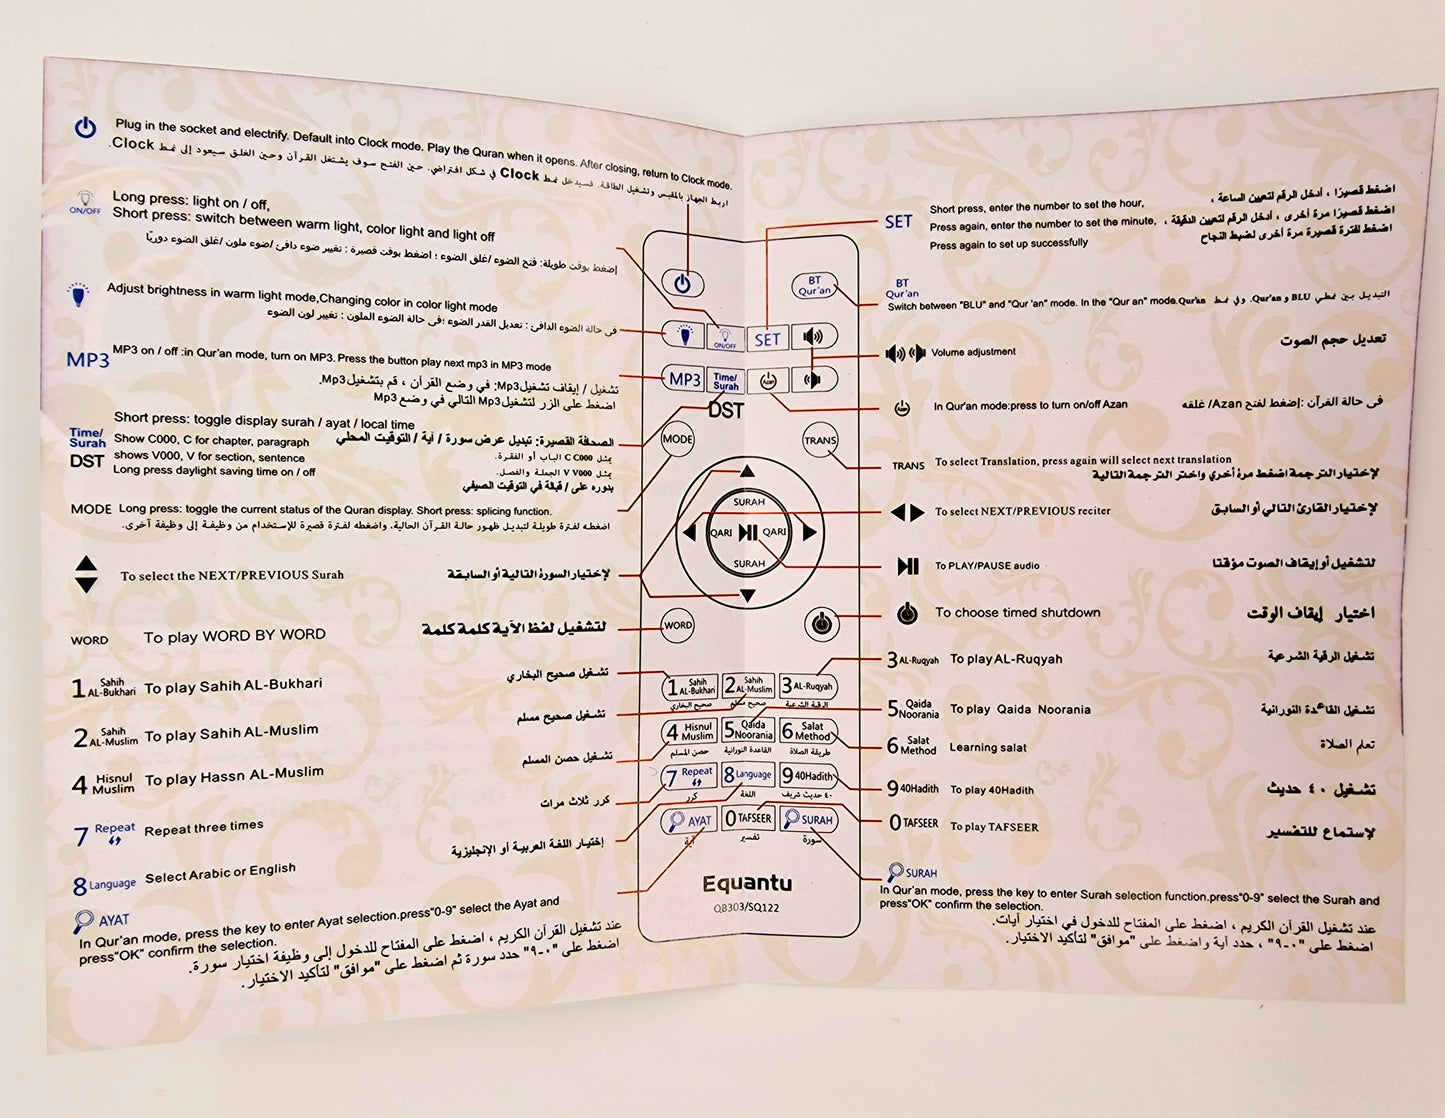 Plug in the socket and electrify. Default into Clock mode. Play the Quran when it opens. After closing, return to Clock mode.
اربط الجهاز بالمقبس وتشغيل الطاقة. فسيدخل نمط Clock في شكل افتراضي. حين الفتح سوف يشتغل القرآن وحين الغلق سيعود إلى نمط Clock.
ON/OFF
Long press: light on / off,
Short press: switch between warm light, color light and light off
إضغط بوقت طويلة: فتح الضوء /غلق الضوء ؛ اضغط بوقت قصيرة : تغيير ضوء دافئ /ضوء ملون /غلق الضوء دوريًا
Adjust brightness in warm light mode,Changing color in color light mode
في حالة الضوء الدافئ : تعديل القدر الضوء ؛في حالة الضوء الملون : تغيير لون الضوء
MP3
MP3 on / off :in Qur'an mode, turn on MP3. Press the button play next mp3 in MP3 mode
تشغيل / إيقاف تشغيلMp3: في وضع القرآن ، قم بتشغيلMp3.
اضغط على الزر لتشغيلMp3 التالي في وضع Mp3
Time/
Surah
DST
Short press: toggle display surah / ayat / local time
الصحافة القصيرة: تبديل عرض سورة / آية / التوقيت المحلي
Show C000, C for chapter, paragraph
يمثل C C000 الباب أو الفقرة.
shows V000, V for section, sentence
يمثل V V000 الجملة والفصل.
Long press daylight saving time on / off
بدوره على / قبالة في التوقيت الصيفي
MODE Long press: toggle the current status of the Quran display. Short press: splicing function.
اضغطه لفترة طويلة لتبديل ظهور حالة القرآن الحالية. واضغطه لفترة قصيرة للإستخدام من وظيفة إلى وظيفة أخرى.
To select the NEXT/PREVIOUS Surah
لإختيار السورة التالية أو السابقة
WORD To play WORD BY WORD
لتشغيل لفظ الآية كلمة كلمة
1 Sahih AL-Bukhari To play Sahih AL-Bukhari
تشغيل صحيح البخاري
2 Sahih AL-Muslim To play Sahih AL-Muslim
تشغيل صحيح مسلم
4 Hisnul Muslim To play Hassn AL-Muslim
تشغيل حصن المسلم
7 Repeat Repeat three times
كرر ثلاث مرات
8 Language Select Arabic or English
إختيار اللغة العربية أو الإنجليزية
AYAT
In Qur'an mode, press the key to enter Ayat selection.press"0-9" select the Ayat and
press"OK" confirm the selection.
عند تشغيل القرآن الكريم ، اضغط على المفتاح للدخول إلى وظيفة اختيار سورة.
اضغط على "٠-٩" حدد سورة ثم اضغط على "موافق" لتأكيد الاختيار.
BT
Qur'an
ON/OFF
SET
MP3
Time/
Surah
Azan
DST
MODE
TRANS
SURAH
QARI
QARI
SURAH
WORD
1 Sahih AL-Bukhari
2 Sahih AL-Muslim
3 AL-Ruqyah
صحيح البخاري
صحيح مسلم
الرقية الشرعية
4 Hisnul Muslim
5 Qaida Noorania
6 Salat Method
حصن المسلم
القاعدة النورانية
طريقة الصلاة
7 Repeat
8 Language
9 40Hadith
كرر
اللغة
٤٠ حديث شريف
AYAT
0 TAFSEER
SURAH
آية
تفسير
سورة
Equantu
QB303/SQ122
SET
Short press, enter the number to set the hour,
اضغط قصيرًا ، أدخل الرقم لتعيين الساعة ،
Press again, enter the number to set the minute,
اضغط قصيرًا مرة أخرى ، أدخل الرقم لتعيين الدقيقة ،
Press again to set up successfully
اضغط لفترة قصيرة مرة أخرى لضبط النجاح
BT
Qur'an
Switch between "BLU" and "Qur 'an" mode. In the "Qur an" mode.
التبديل بين نمطي BLU و Qur'an. وفي نمط Qur'an
Volume adjustment
تعديل حجم الصوت
Azan
In Qur'an mode:press to turn on/off Azan
في حالة القرآن :إضغط لفتح Azan/ غلقه
TRANS To select Translation, press again will select next translation
لإختيار الترجمة اضغط مرة أخري واختر الترجمة التالية
To select NEXT/PREVIOUS reciter
لإختيار القارئ التالي أو السابق
To PLAY/PAUSE audio
لتشغيل أو إيقاف الصوت مؤقتا
To choose timed shutdown
اختيار إيقاف الوقت
3 AL-Ruqyah To play AL-Ruqyah
تشغيل الرقية الشرعية
5 Qaida Noorania To play Qaida Noorania
تشغيل القاعدة النورانية
6 Salat Method Learning salat
تعلم الصلاة
9 40Hadith To play 40Hadith
تشغيل ٤٠ حديث
0 TAFSEER To play TAFSEER
لإستماع للتفسير
SURAH
In Qur'an mode, press the key to enter Surah selection function.press"0-9" select the Surah and
press"OK" confirm the selection.
عند تشغيل القرآن الكريم ، اضغط على المفتاح للدخول في اختيار آيات.
اضغط على "٠-٩" ، حدد آية واضغط على "موافق" لتأكيد الاختيار.